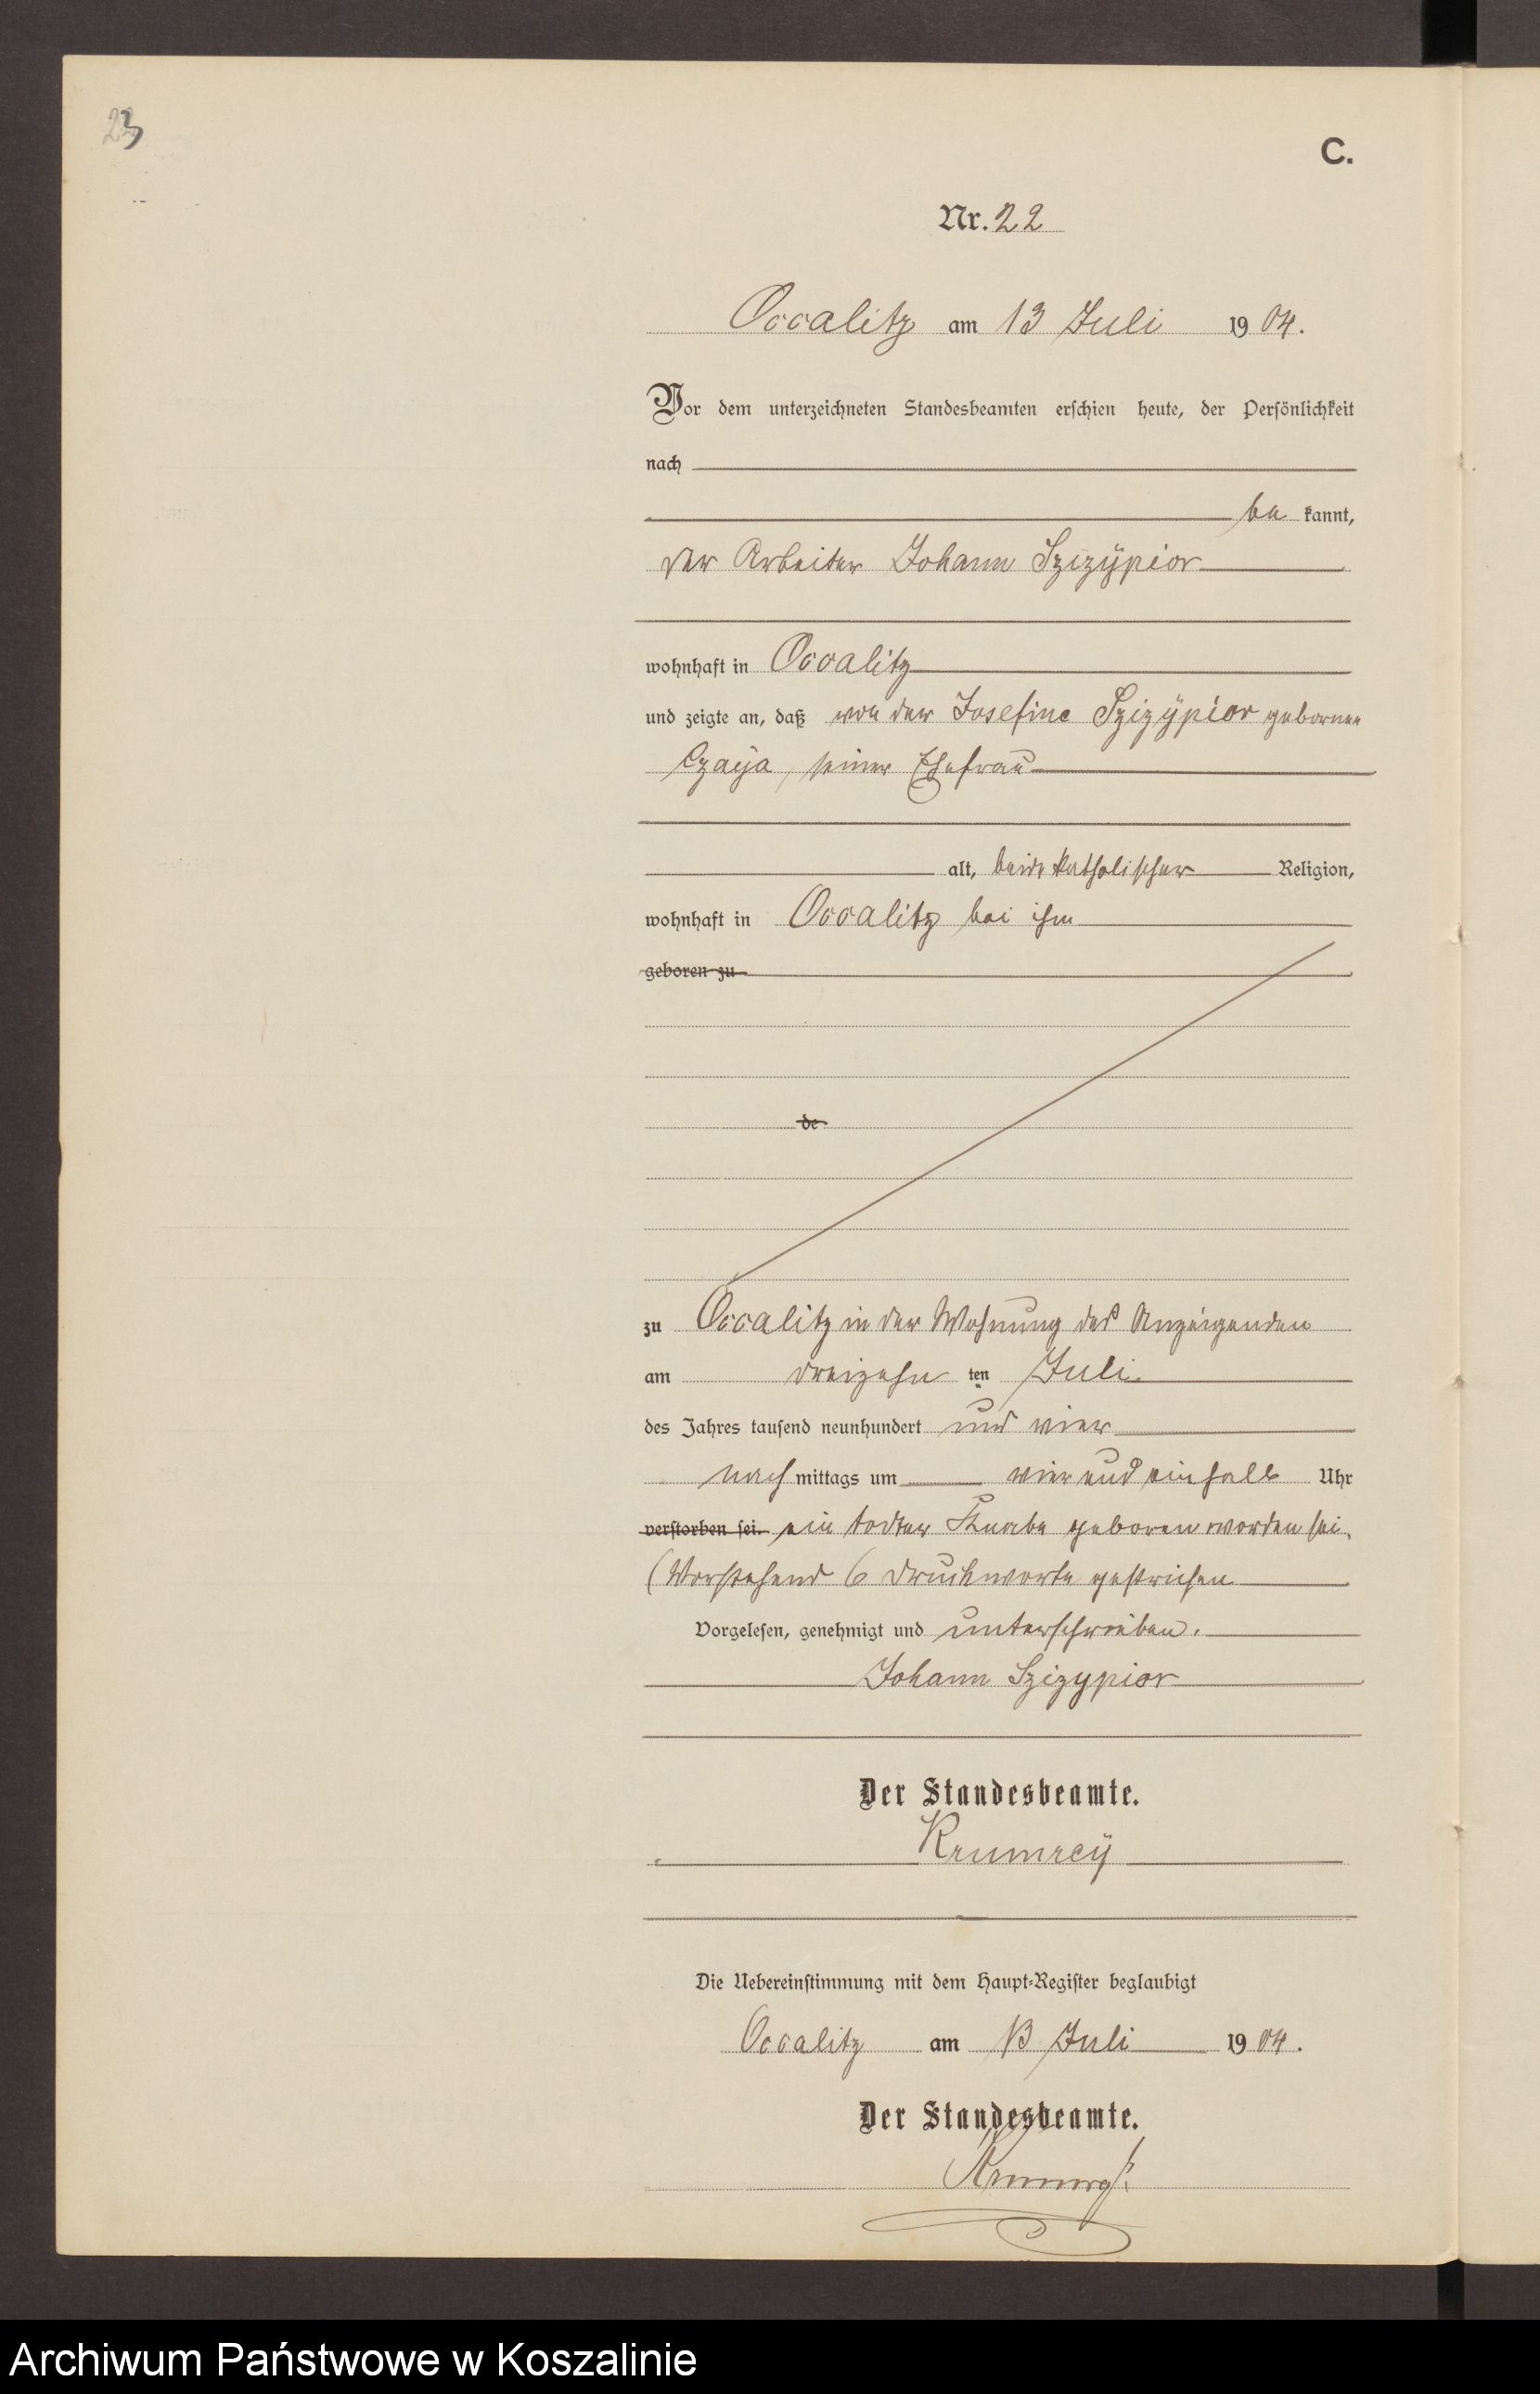 23
C.
Nr. 22
Occalitz am 13 Juli 1904.
Vor dem unterzeichneten Standesbeamten erschien heute, der Persönlichkeit
nach
be kannt,
der Arbeiter Johann Szizÿpior
wohnhaft in Occalitz
und zeigte an, daß von der Josefine Szizÿpior gebornen
Czaÿa, seiner Ehefrau
alt, beide katholischer Religion,
wohnhaft in Occalitz bei ihm
geboren zu
de
zu Occalitz in der Wohnung des Anzeigenden
am dreizehn ten Juli
des Jahres tausend neunhundert und vier
nach mittags um vier und ein halb Uhr
verstorben sei. ein todter Knabe geboren worden sei.
(Vorstehend 6 Druckworte gestrichen
Vorgelesen, genehmigt und unterschrieben.
Johann Szizypior
Der Standesbeamte.
Krumreÿ
Die Uebereinstimmung mit dem Haupt-Register beglaubigt
Occalitz am 13 Juli 1904.
Der Standesbeamte.
Krumrey
Archiwum Państwowe w Koszalinie